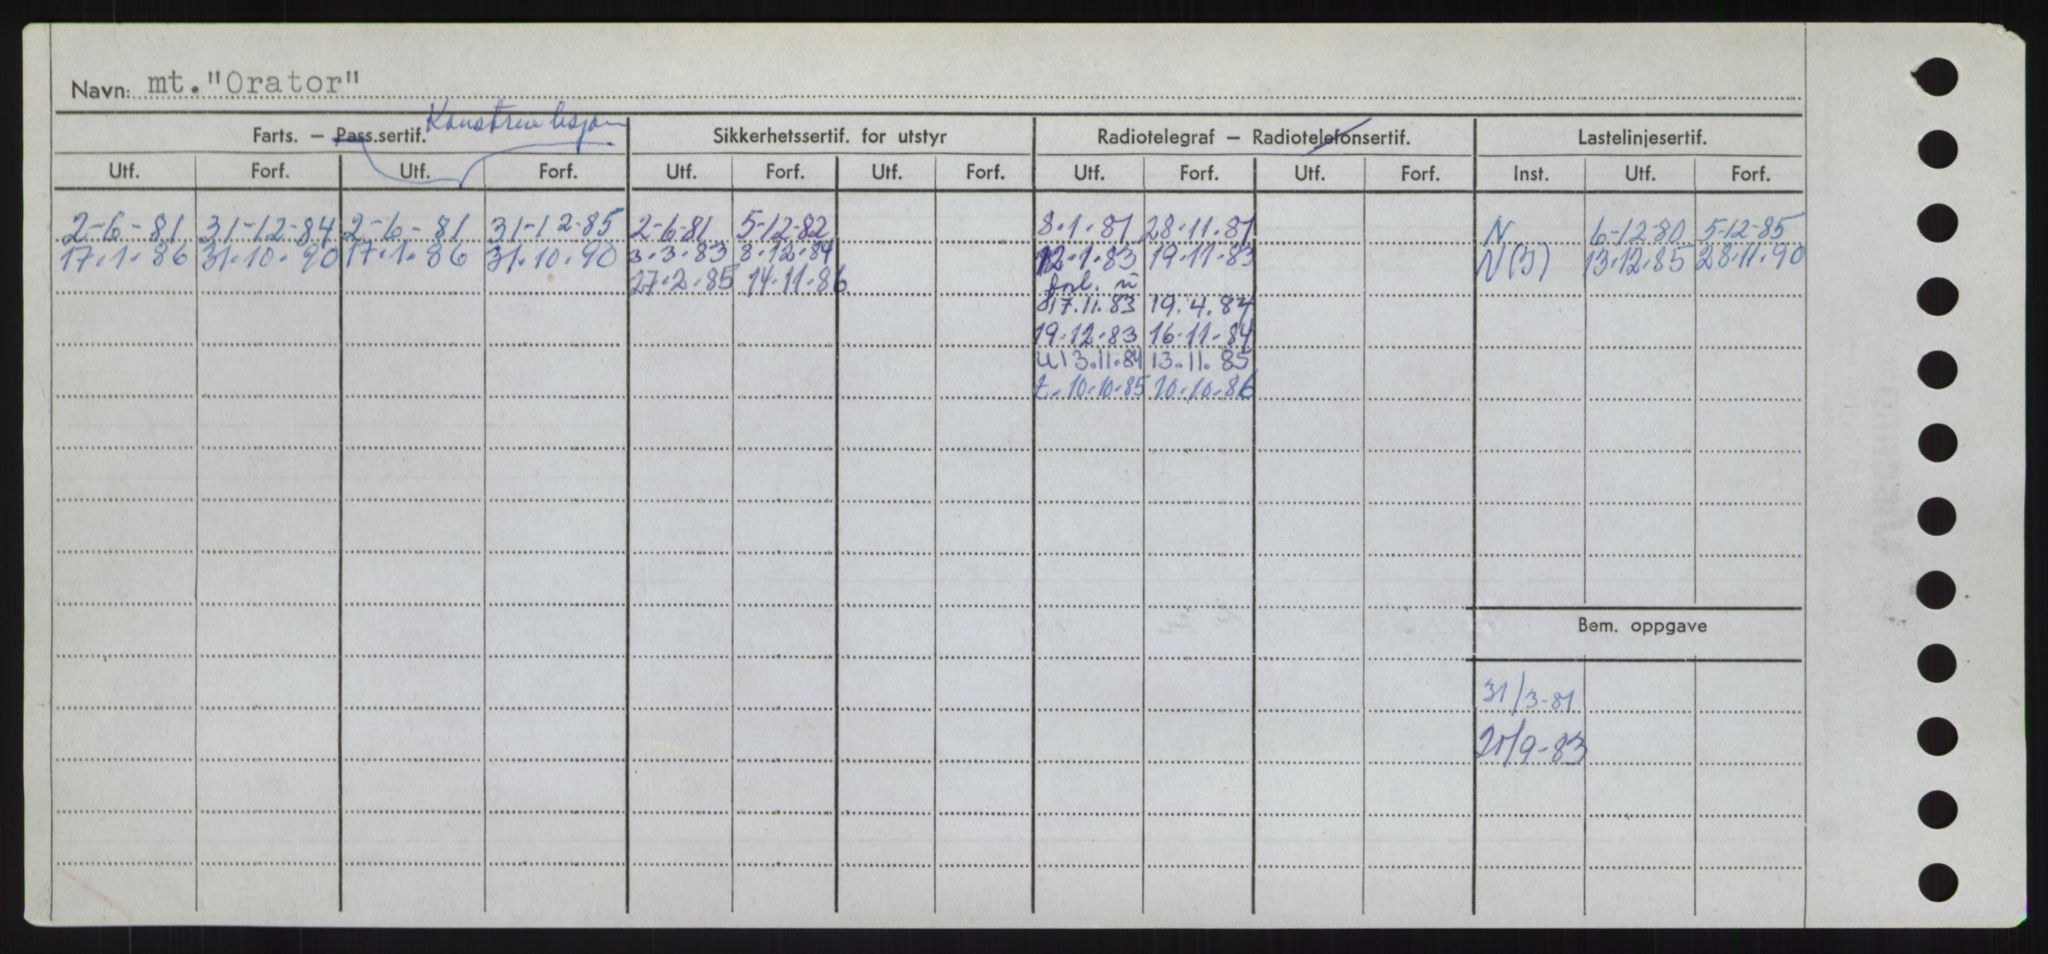 Navn: mt. "Orator"
Konstruksjon
Farts. — Pass.sertif. Sikkerhetssertif. for utstyr Radiotelegraf — Radiotelefonsertif. Lastelinjesertif.
Utf. Forf. Utf. Forf. Utf. Forf. Utf. Forf. Utf. Forf. Utf. Forf. Inst. Utf. Forf.
2-6-81 31-12-84 2-6-81 31-12-85 2-6-81 5-12-82 8.1.81 28.11.81 N 6-12-80 5-12-85
17.1.86 31.10.90 17.1.86 31.10.90 3.3.83 8.12.84 12.1.83 19.11.83 N(J) 13.12.85 28.11.90
27.2.85 14.11.86 forl. u
17.11.83 19.4.84
19.12.83 16.11.84
U 13.11.84 13.11.85
t. 10.10.85 10.10.86
Bem. oppgave
31/3-81
20/9-83